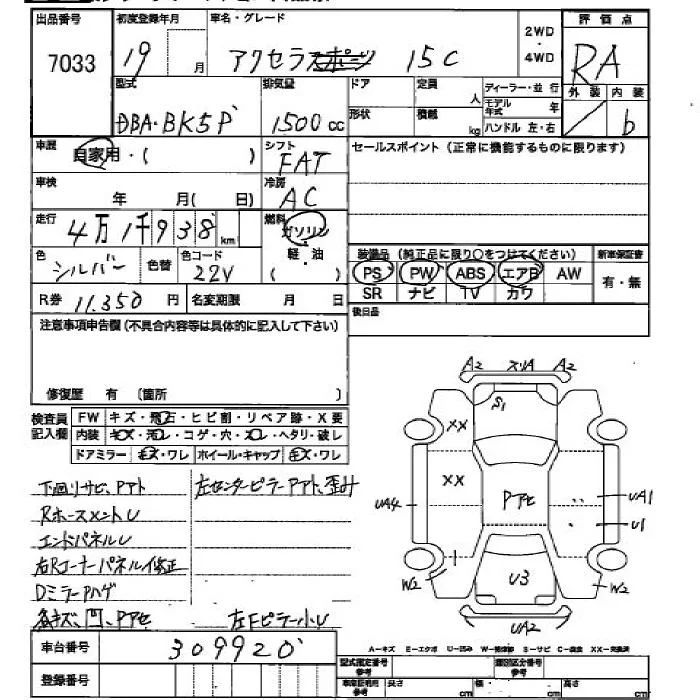 出品番号 初度登録年月 車名・グレード 評価点
7033 19 月 アクセラスポーツ 15C 2WD・4WD RA
型式 排気量 ドア 定員 人 ディーラー・並行 外装 内装
DBA・BK5P 1500cc 形状 積載 kg モデル年式 年 ハンドル 左・右 b
車歴 自家用・( ) シフト FAT セールスポイント(正常に機能するものに限ります)
車検 年 月( 日) 冷房 AC
走行 4万1千938km 燃料 ガソリン
軽・油
( )
色 シルバー 色替 色コード 22V 装備品(純正品に限り○をつけてください) 新車保証書
PS PW ABS エアB AW 有・無
SR ナビ TV カワ
R券 11.350円 名変期限 月 日 後日品
注意事項申告欄(不具合内容等は具体的に記入して下さい)
修復歴 有 〔箇所 〕
検査員記入欄 FW キズ・飛石・ヒビ割・リペア跡・X要
内装 キズ・汚レ・コゲ・穴・スレ・ヘタリ・破レ
ドアミラー キズ・ワレ ホイール・キャップ キズ・ワレ
下廻リサビ、Pアト 左センターピラーPアト、歪み
RホースメントU
エンドパネルU
右Rコーナーパネル修正
DミラーPハゲ
各キズ、凹、Pアセ 左Fピラー小U
車台番号 309920
登録番号
A2 スリA A2
S1
XX
XX
UA4 Pアセ UA1
U1
W2 U3 W2
UA2
A-キズ E-エクボ U-凹み W-補修跡 S-サビ C-腐食 XX-交換済
型式指定番号 参考 類別区分番号 参考
車庫証明用 参考 長さ cm 幅 cm 高さ cm